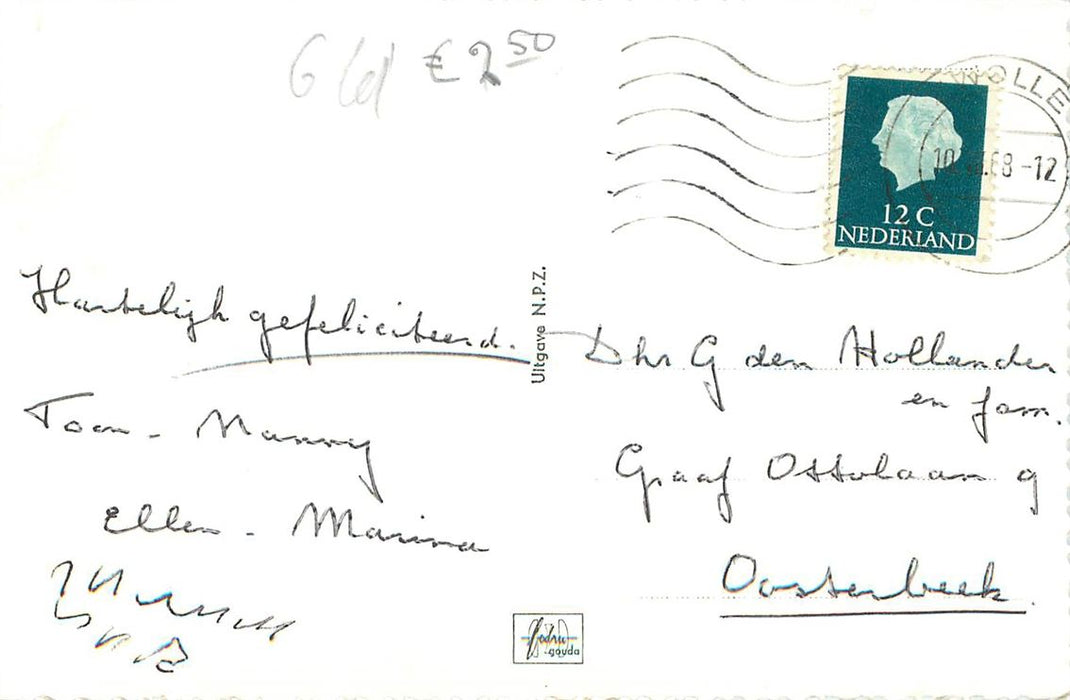 € 2 50
ZWOLLE
68-12
12 C
NEDERLAND
Hartelijk gefeliciteerd.
Toon - Manny
Ellen - Marina
Uitgave N.P.Z.
Dhr G den Hollander
en fam.
Graaf Ottolaan 9
Oosterbeek
gouda